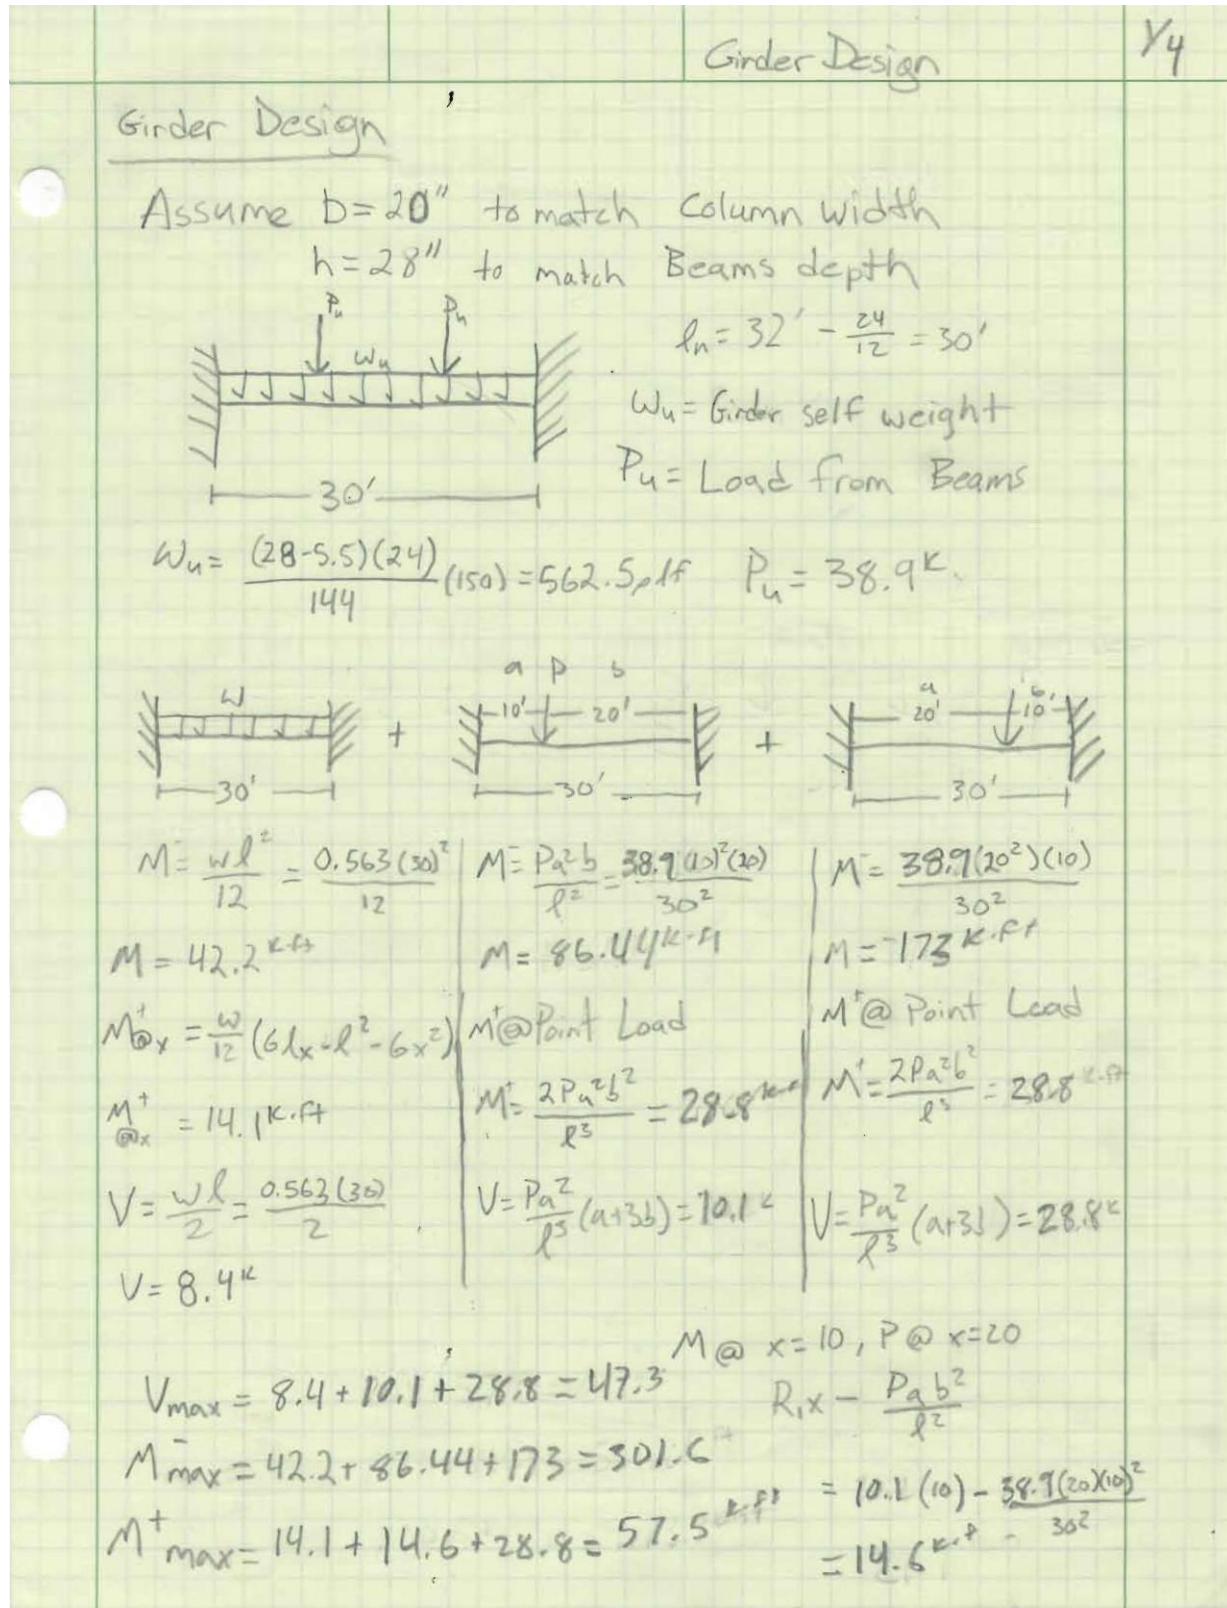 Girder Design
1/4
Girder Design
Assume b=20" to match Column width
h=28" to match Beams depth
Pu Pu
Wu
ln = 32' - 24/12 = 30'
Wu = Girder self weight
Pu = Load from Beams
30'
Wu = (28-5.5)(24)/144 (150) = 562.5 plf Pu = 38.9 K
W + a P b + a b
10' 20' 20' 10'
30' 30' 30'
M⁻ = wl²/12 = 0.563(30)²/12
M = 42.2 K-ft
M⁺@x = w/12 (6lx - l² - 6x²)
M⁺@x = 14.1 K-ft
V = wl/2 = 0.563(30)/2
V = 8.4 K
M⁻ = Pa²b/l² = 38.9(10)²(20)/30²
M = 86.44 K-ft
M⁺@Point Load
M⁺ = 2Pa²b²/l³ = 28.8 K-ft
V = Pa²/l³ (a+3b) = 10.1 K
M⁻ = 38.9(20²)(10)/30²
M = 173 K-ft
M⁺@ Point Load
M⁺ = 2Pa²b²/l³ = 28.8 K-ft
V = Pa²/l³ (a+3b) = 28.8 K
Vmax = 8.4 + 10.1 + 28.8 = 47.3
M⁻max = 42.2 + 86.44 + 173 = 301.6
M⁺max = 14.1 + 14.6 + 28.8 = 57.5 K-ft
M@ x=10, P@ x=20
R₁x - Pab²/l²
= 10.1(10) - 38.9(20)(10)²/30²
= 14.6 K-ft